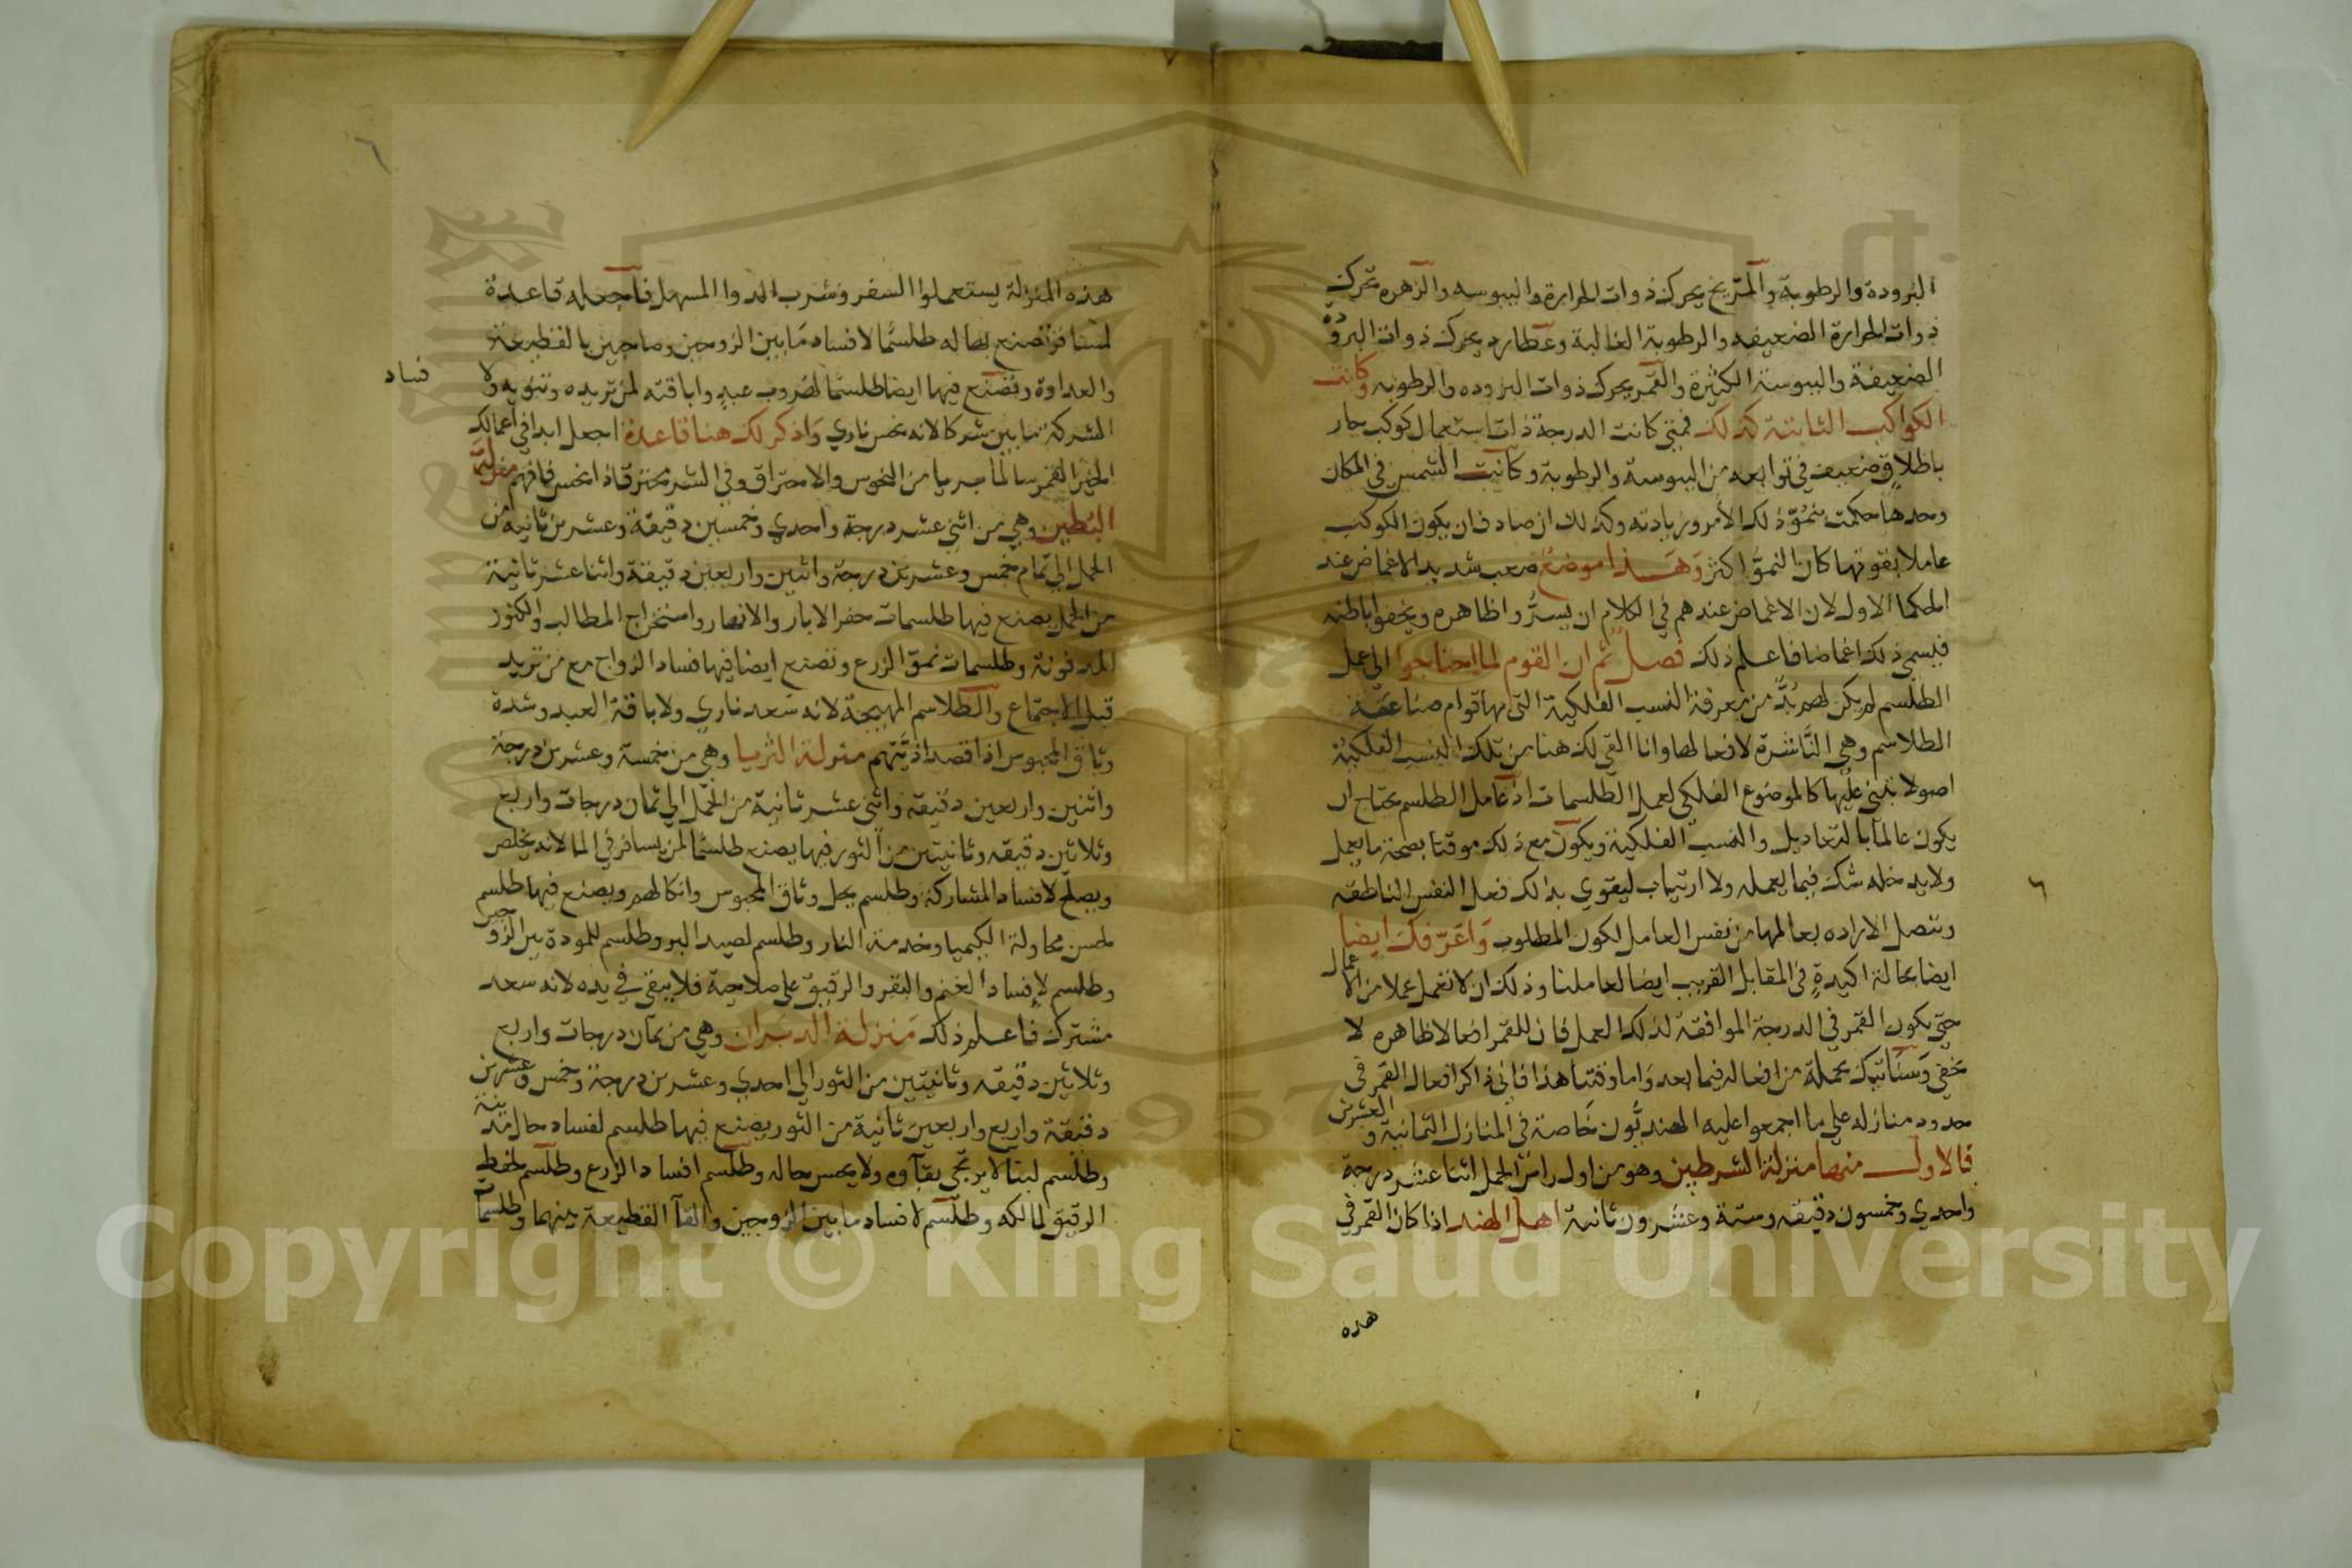 البرودة والرطوبة والمريخ يحرك ذوات الحرارة واليبوسه والزهره تحرك
ذوات الحرارة الضعيفه والرطوبة الغالبة وعطارد يحرك ذوات البرودة
الضعيفة واليبوسة الكثيرة والقمر يحرك ذوات البروده والرطوبه وكانت
الكواكب الثابتة كذلك فمتى كانت الدرجة ذات استعمال كوكب حار
باطلاق ضعيف في توابعه من اليبوسة والرطوبة وكانت الشمس في المكان
وحدها حكمت بنمو ذلك الأمر وزيادته وكذلك ان صادف ان يكون الكوكب
عاملا بقوتها كان النمو اكثر وهذا موضع صعب شديد الاغماض عند
الحكما الاول لان الاغماض عندهم في الكلام ان يستروا ظاهره ويخفوا باطنه
فيسمى ذلك اغماضا فاعلم ذلك فصل ثم ان القوم لما احتاجوا الى عمل
الطلسم لم يكن لهم بد من معرفة النسب الفلكية التي بها قوام صناعة
الطلاسم وهي الناشرة لافعالها وانا القي لك هنا من تلك النسب الفلكية
اصولا تبتنى عليها كالموضوع الفلكي لعمل الطلسمات اذ عامل الطلسم يحتاج ان
يكون عالما بالتعاديل والنسب الفلكية ويكون مع ذلك موقنا بصحة ما يعمل
ولا يدخله شك فيما يعمله ولا ارتياب ليقوي بذلك فعل النفس الناطقه
وتتصل الاراده بعالمها من نفس العامل لكون المطلوب واعرفك ايضا
ايضا بحالة اكيدة في المقابل القريب ايضا لعاملنا وذلك ان لا تعمل عملا من الاعمال
حتى يكون القمر في الدرجة الموافقة لذلك العمل فان للقمر افعالا ظاهره لا
تخفى وسنأتيك بجملة من افعاله فيما بعد واما وقتنا هذا فاني ذاكر افعال القمر في
حدود منازله على ما اجمعوا عليه الهنديون خاصة في المنازل الثمانية والعشرين
فالاول منها منزلة الشرطين وهو من اول راس الحمل اثنا عشر درجة
واحدي وخمسون دقيقه وستة وعشرون ثانية اهل الهند اذا كان القمر في
هذه
هذه المنزلة يستعملوا السفر وشرب الدوا المسهل فاجعله قاعدة
لمسافر تصنع بها له طلسما لافساد ما بين الزوجين وصاحبين بالقطيعة
والعداوة وتصنع فيها ايضا طلسما لهروب عبد واباقته لمن تريده وتنويه ولا
فساد
الشركة ما بين شركا لانه نحس ناري واذكر لك هنا قاعدة اجعل ابدا في اعمالك
الخير القمر سالما بريا من النحوس والاحتراق وفي الشر محترقا ذا نحس فافهم منزلة
البطين وهي من اثني عشر درجة واحدي وخمسين دقيقة وعشرين ثانيه من
الحمل الى تمام خمس وعشرين درجة واثنين واربعين دقيقة واثنا عشر ثانية
من الحمل يصنع فيها طلسمات حفر الابار والانهار واستخراج المطالب والكنوز
المدفونة وطلسمات نمو الزرع وتصنع ايضا فيها فساد الزواج مع من تريد
قبل الاجتماع والطلاسم المهيجة لانه سعد ناري ولاباقة العبد وشدة
وثاق المحبوس اذا قصد اذيتهم منزلة الثريا وهي من خمسة وعشرين درجة
واثنين واربعين دقيقه واثني عشر ثانية من الحمل الي ثمان درجات واربع
وثلاثين دقيقه وثانيتين من الثور فيها يصنع طلسما لمن يسافر في الما لانه يخلص
ويصلح لافساد المشاركة وطلسم بحل وثاق المحبوس وانكالهم ويصنع فيها طلسم
لحسن محاولة الكيميا وخدمة النار وطلسم لصيد البر وطلسم للمودة بين الزوجين
وطلسم لافساد الغنم والبقر والرقيق على صلاحية فلا يبقى في يده لانه سعد
مشترك فاعلم ذلك منزلة الدبران وهي من ثمان درجات واربع
وثلاثين دقيقه وثانيتين من الثور الي احدي وعشرين درجة وخمس وعشرين
دقيقة واربع واربعين ثانية من الثور يصنع فيها طلسم لفساد حال مدينة
وطلسم لبنا لا يرتجى بقآوه ولا يحسن حاله وطلسم افساد الزرع وطلسم لحفظ
الرقيق لمالكه وطلسم لافساد ما بين الزوجين والقآ القطيعة بينهما وطلسما
Copyright © King Saud University
1957